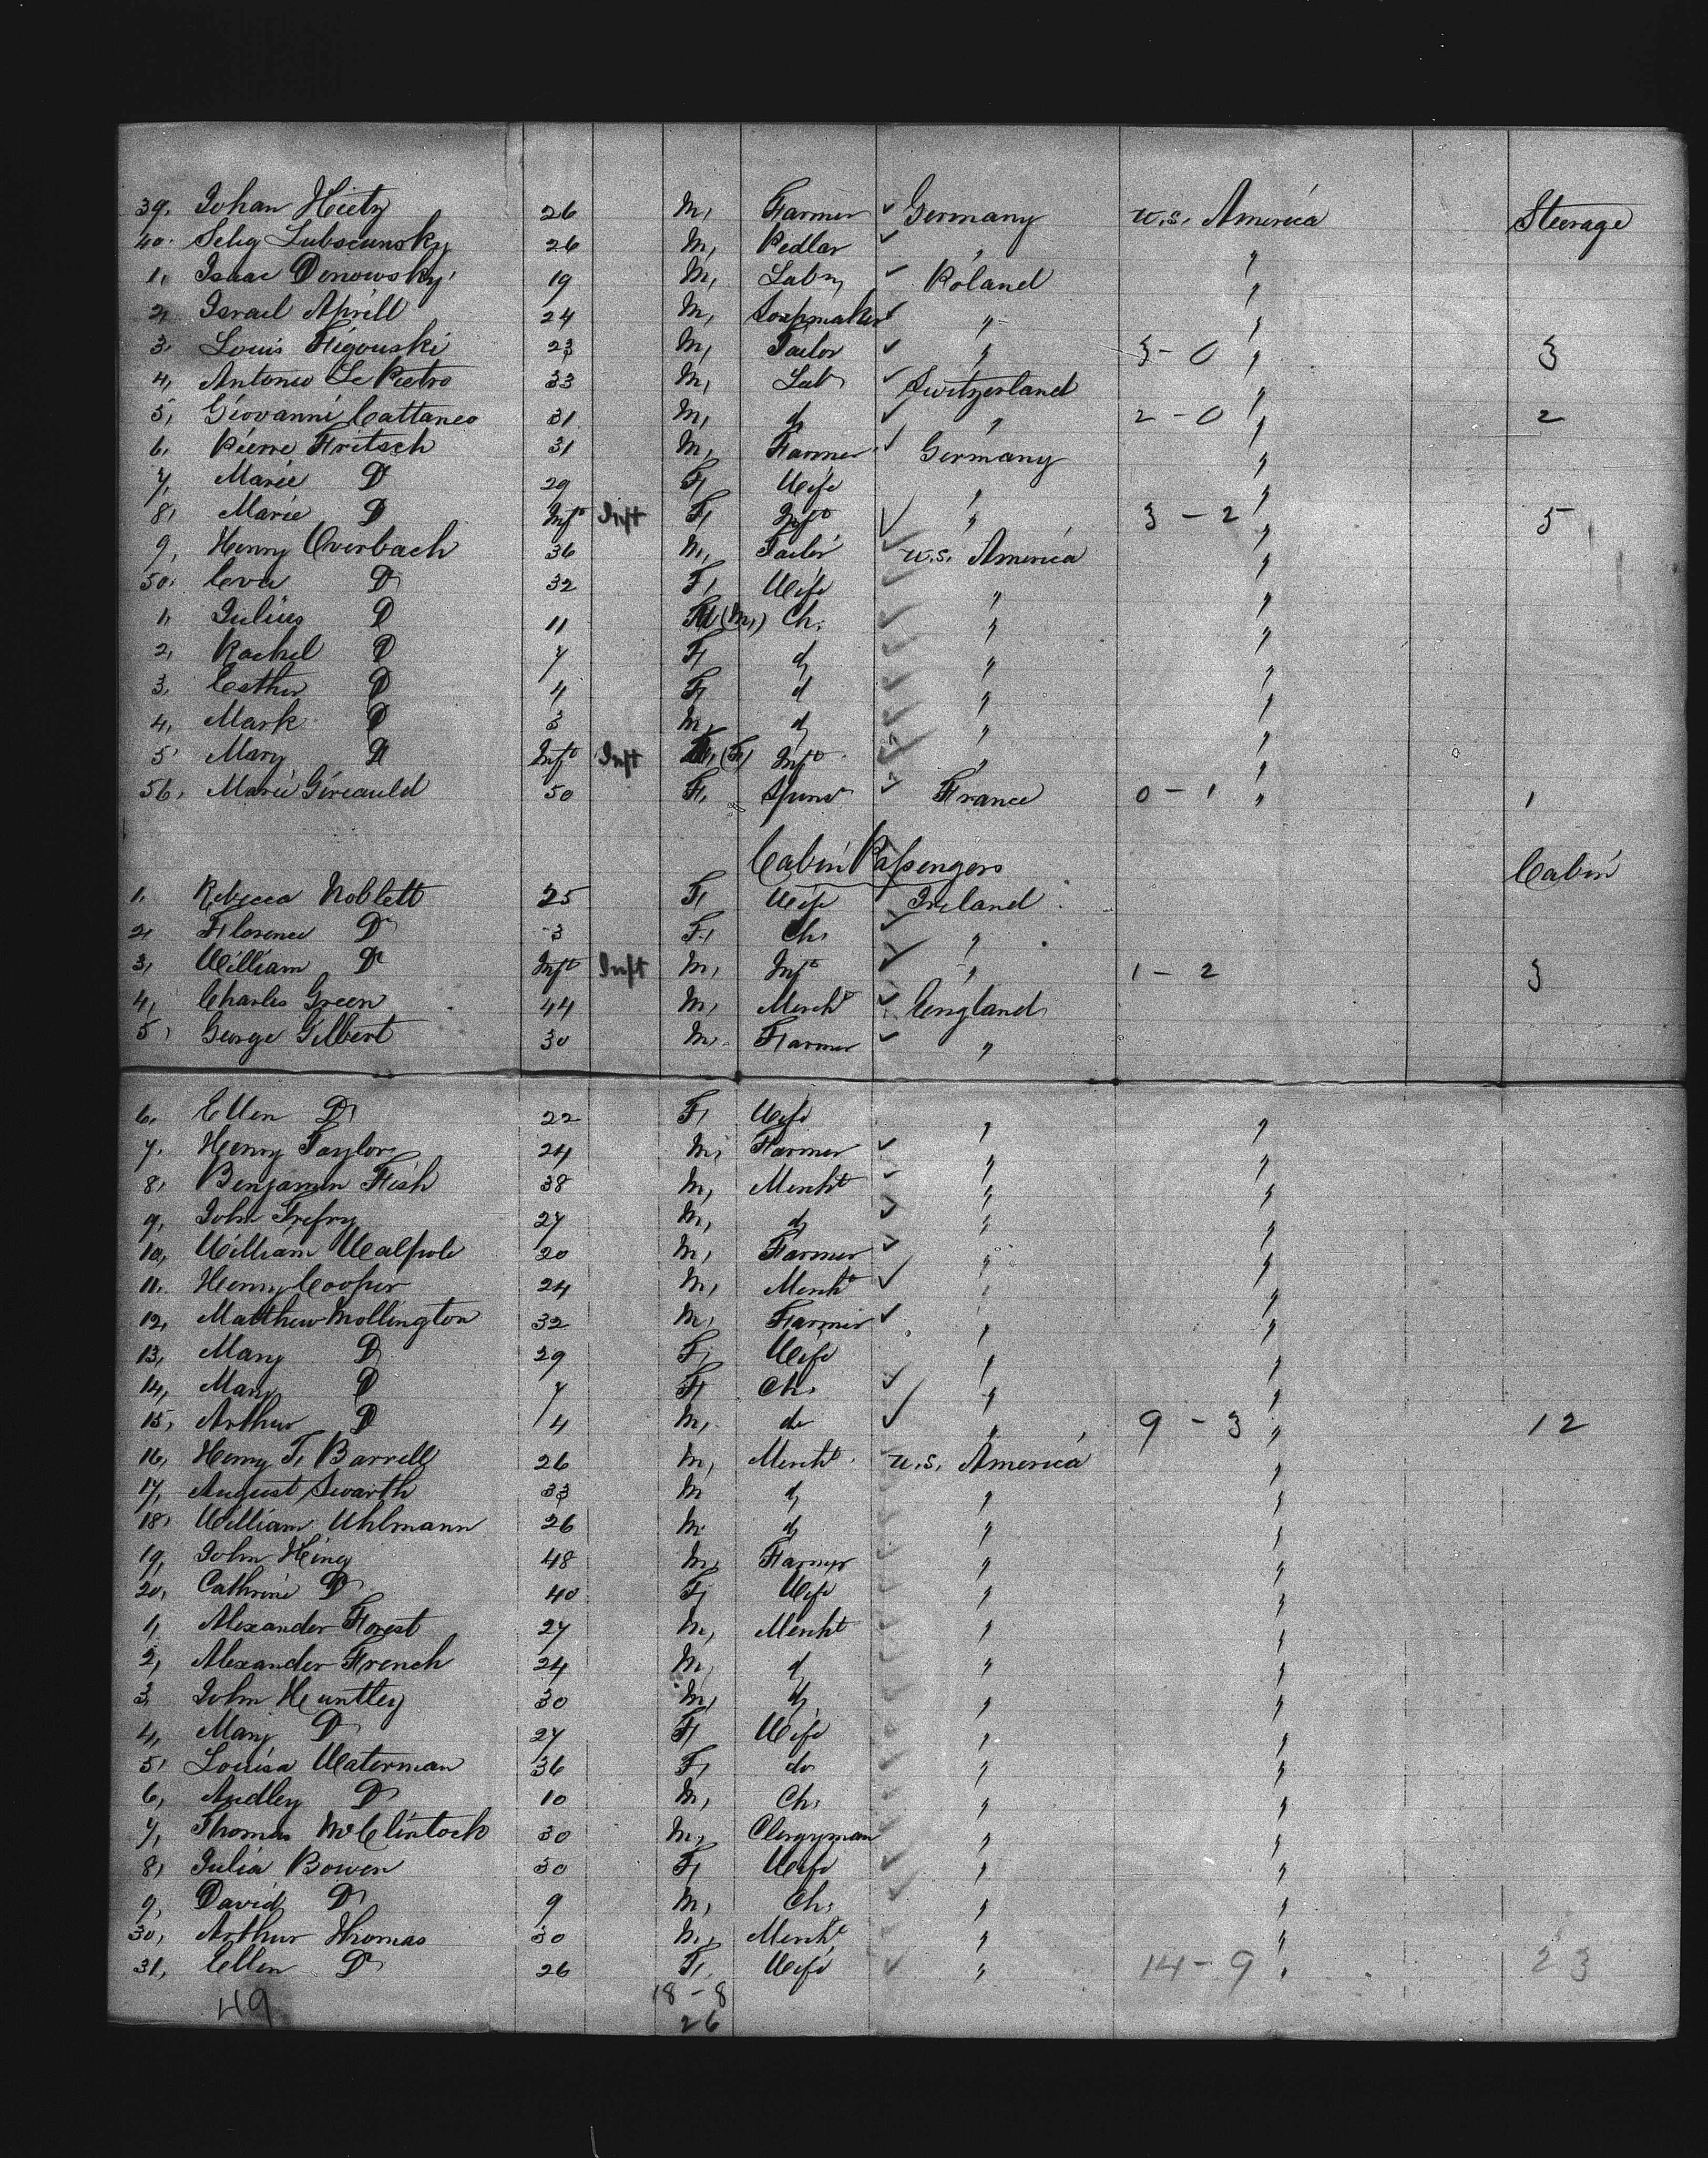 39, Johan Hietz 26 M, Farmer Germany U.S. America Steerage
40. Selig Lubscunsky 26 M, Pedlar " "
1, Isaac Donowsky 19 M, Labr, Poland "
2, Israel Aprill 24 M, Soapmaker " "
3, Louis Figouski 23 M, Tailor " 3 - 0 " 3
4, Antonio Le Pietro 33 M, Labr Switzerland "
5, Giovanni Cattaneo 31 M, d " 2 - 0 " 2
6, Pierre Fritsch 31 M, Farmer Germany "
7, Marie D 29 F, Wife " "
8, Marie D Inft Inft F, Inft " 3 - 2 " 5
9, Henry Overbach 36 M, Tailor U.S. America "
50, Eva D 32 F, Wife " "
1, Julius D 11 (M,) Ch, " "
2, Rachel D 7 F, d " "
3, Esther D 4 F, d " "
4, Mark D 3 M, d " "
5, Mary D Inft Inft (F) Inft " "
56, Marie Gireauld 50 F, Spinr France 0 - 1 " 1
Cabin Passengers Cabin
1, Rebecca Noblett 25 F, Wife Ireland
2, Florence D 3 F, Ch, "
3, William D Inft Inft M, Inft " 1 - 2 3
4, Charles Green 44 M, Mercht England
5, George Gilbert 30 M, Farmer "
6, Ellen D 22 F, Wife " "
7, Henry Taylor 24 M, Farmer " "
8, Benjamin Fish 38 M, Mercht " "
9, John Trefry 27 M, d " "
10, William Walpole 20 M, Farmer " "
11, Henry Cooper 24 M, Mercht " "
12, Matthew Mollington 32 M, Farmer " "
13, Mary D 29 F, Wife " "
14, Mary D 7 F, Ch, " "
15, Arthur D 4 M, do " 9 - 3 " 12
16, Henry T. Barrell 26 M, Mercht U.S. America "
17, August Swarth 33 M d " "
18, William Uhlmann 26 M d " "
19, John Hiney 48 M, Farmer " "
20, Cathrine D 40 F, Wife " "
1, Alexander Forest 27 M, Mercht " "
2, Alexander French 24 M, d " "
3, John Huntley 30 M, d " "
4, Mary D 27 F, Wife " "
5, Louisa Waterman 36 F, do " "
6, Audley D 10 M, Ch, " "
7, Thomas McClintock 30 M, Clergyman " "
8, Julia Bowen 30 F, Wife " "
9, David D 9 M, Ch, " "
30, Arthur Thomas 30 M, Mercht " "
31, Ellen D 26 F, Wife " 14 - 9 " 23
49 18 - 8
26